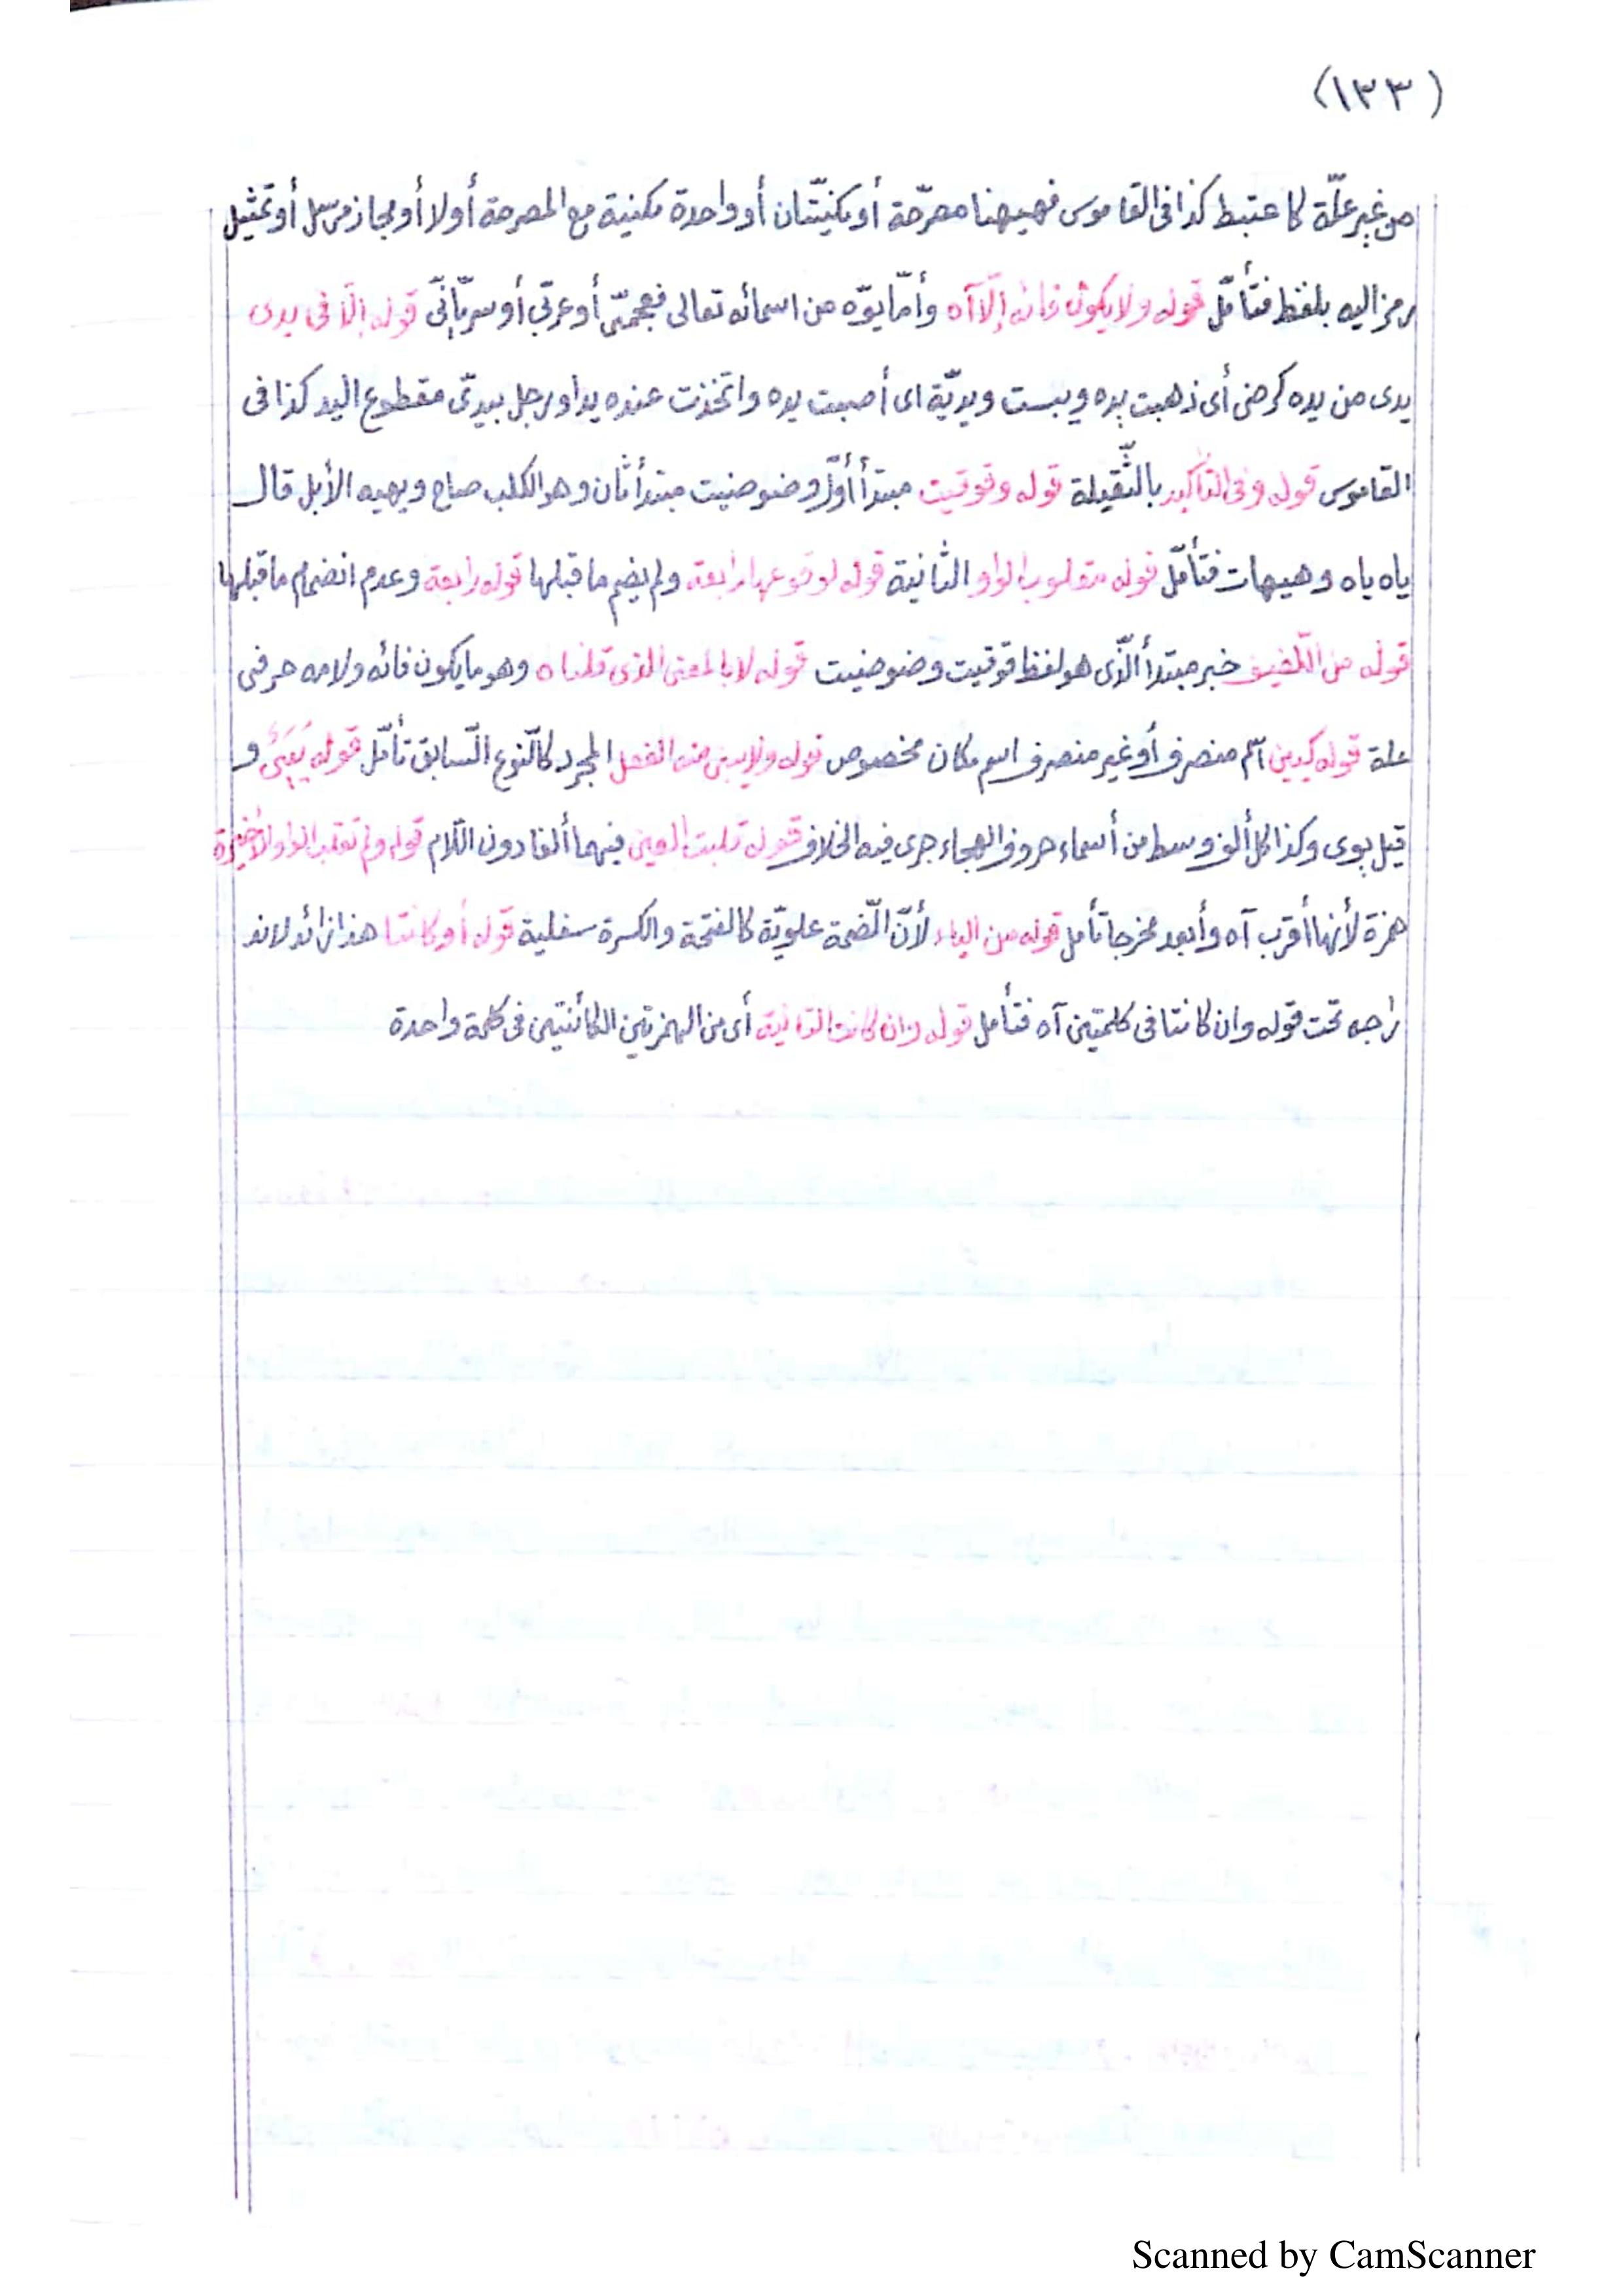 (١٣٣)
من غير علّة كاعتبط كذا فى القاموس فهيهنا مصرّحة أو مكنيّتان أو واحدة مكنية مع المصرحة أولا أو مجاز مرسل أو تمثيل
رمز اليه بلفظ فتأمّل قوله ولا يكون فائه إلّا آه وأمّا يوّه من اسمائه تعالى فعجمىّ أو عربّى أو سريّانّى قوله إلّا فى يدى
يدى من يده كرضى أى ذهبت يده ويبست ويديّة اى أصبت يده واتخذت عنده يدا ورجل ميدىّ مقطوع اليد كذا فى
القاموس قوله وفى التأكيد بالثّقيلة قوله وقوقيت مبتدأ أوّل وضوضيت مبتدأ ثان وهو الكلب صاح ويهيه الأبل قال
ياه ياه وهيهات فتأمّل قوله مقلوب الواو الثانية قوله لوقوعها رابعة ولم يضم ما قبلها قوله رابعة وعدم انضمام ما قبلها
قوله من اللّفيف خبر مبتدأ الّذى هو لفظ قوقيت وضوضيت قوله لا بالمعنى الذى قلناه وهو ما يكون فائه ولامه حرفى
علة قوله كيين منصرف أو غير منصرف اسم مكان مخصوص قوله ولا يبنى منه الفعل المجرد كالنّوع السّابق تأمّل قوله يَيَىَ و
قيل يوى وكذا كل ألف وسط من أسماء حروف الهجاء جرى فيه الخلاف قوله قلبت العين فيهما ألفا دون اللّام قوله ولم تقلب الواو الأخيرة
همزة لأنها أقرب آه وأبعد مخرجا تأمل قوله من الياء لأنّ الضّمة علويّة كالفتحة والكسرة سفلية قوله أو كانتا هذا زائد لاند
راجه تحت قوله وان كانتا فى كلمتين آه فتأمل قوله وان كانت الثانية أى من الهمزتين الكائنتين فى كلمة واحدة
Scanned by CamScanner